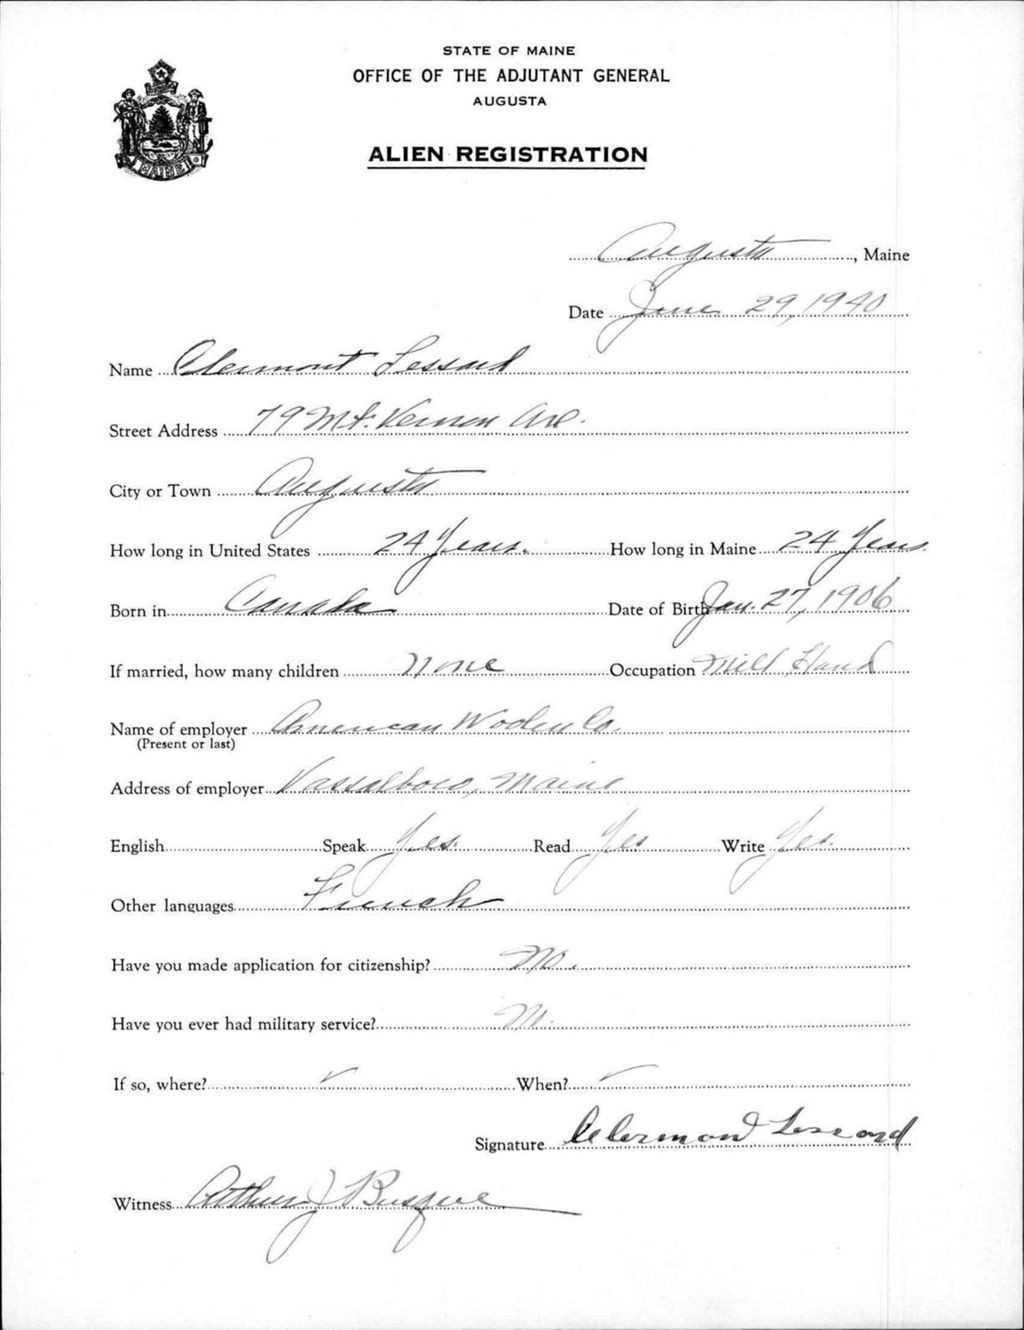 STATE OF MAINE
OFFICE OF THE ADJUTANT GENERAL
AUGUSTA
ALIEN REGISTRATION
MAINE
Augusta, Maine
Date June 29, 1940
Name Clermont Lessard
Street Address 79 Mt. Vernon Ave.
City or Town Augusta
How long in United States 24 Years. How long in Maine 24 Years
Born in Canada Date of Birth Jan. 27, 1906
If married, how many children None Occupation Mill Hand
Name of employer American Woolen Co.
(Present or last)
Address of employer Vassalboro, Maine
English Speak Yes. Read Yes Write Yes.
Other languages French
Have you made application for citizenship? No.
Have you ever had military service? No.
If so, where? ✓ When? ✓
Signature Clermond Lessard
Witness Arthur J Busque